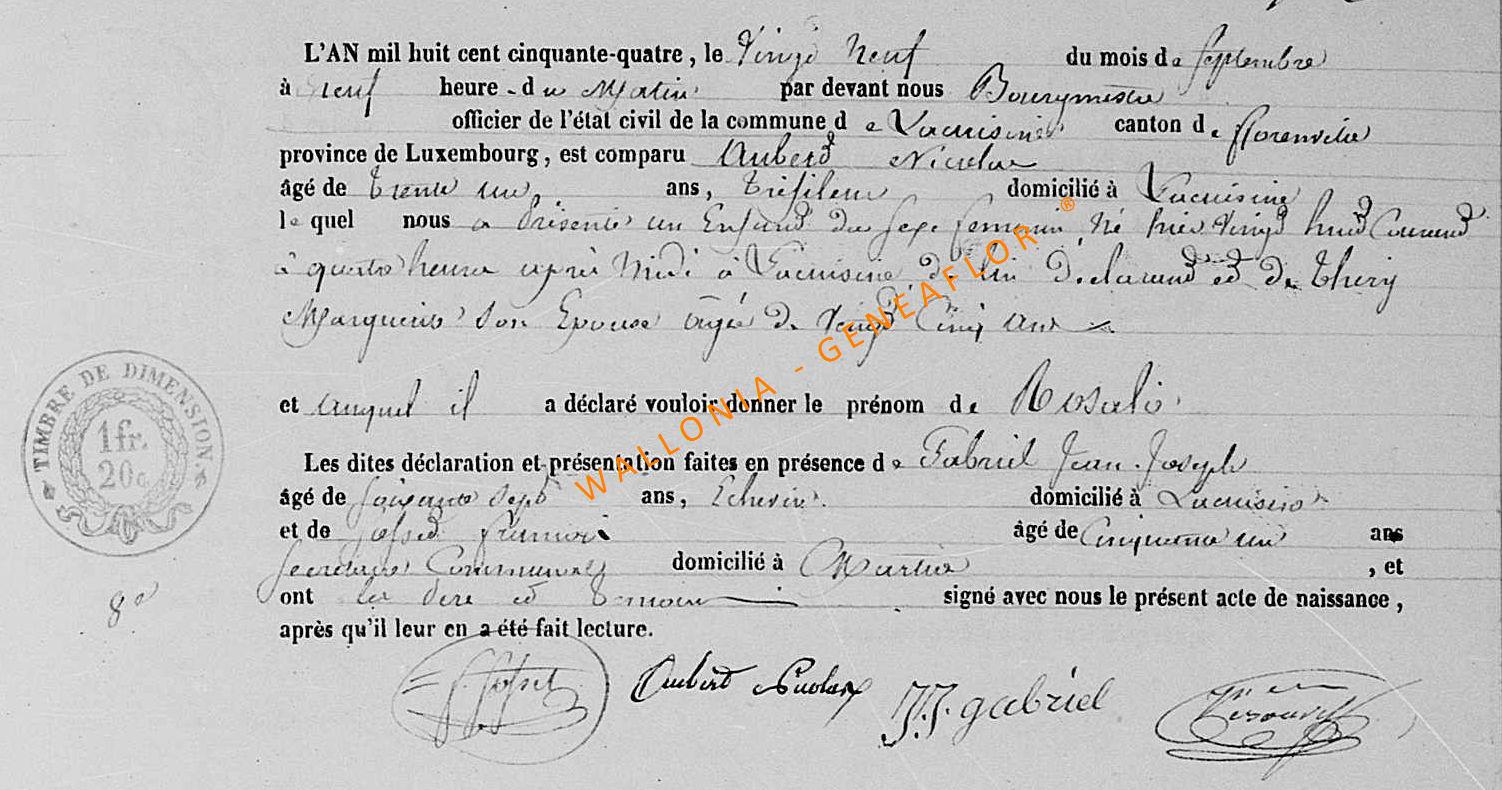 L'AN mil huit cent cinquante-quatre, le Vingt Neuf du mois de Septembre
à Neuf heure du Matin par devant nous Bourgmestre
officier de l'état civil de la commune de Lacuisine canton de florenville
province de Luxembourg, est comparu Aubert Nicolas
âgé de trente un ans, tréfileur domicilié à Lacuisine
le quel nous a présenté un Enfant du sexe feminin, Né hier Vingt huit Courant
à quatre heure après Midi à Lacuisine de lui Déclarant et de Thiry
Marguerite son Epouse agée de Vingt Cinq ans
et auquel il a déclaré vouloir donner le prénom de Rosalie
Les dites déclaration et présentation faites en présence de Gabriel Jean-Joseph
âgé de soixante sept ans, Echevin domicilié à Lacuisine
et de âgé de Cinquante un ans
secretaire Communal domicilié à , et
ont les Père et témoins signé avec nous le présent acte de naissance,
après qu'il leur en a été fait lecture.
Aubert Nicolas
J.J. gabriel
TIMBRE DE DIMENSION
1fr.
20c
WALLONIA - GENEAFLOR ®